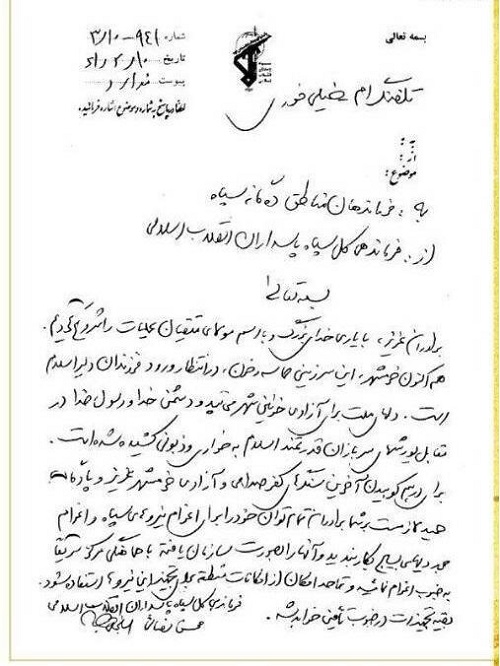 بسمه تعالی
شماره ۹۴۱-۳/۱۰
تاریخ ۶۱/۲/۱۰
پیوست ندارد
لطفا در پاسخ به شماره و موضوع اشاره فرمائید.
تلفنگرام خیلی فوری
به :
از :
موضوع :
به : فرماندهان مناطق دهگانه سپاه
از : فرماندهی کل سپاه پاسداران انقلاب اسلامی
بسمه تعالی
برادران عزیز، با یاری خدای بزرگ و با اسم مولای متقیان عملیات را شروع کردیم.
هم اکنون خرمشهر، این سرزمین حماسه و خون، در انتظار ورود فرزندان دلیر اسلام
است. دلهای ملت برای آزادی خونین شهر می‌تپد و دشمن خدا و رسول خدا در
مقابل یورشهای سربازان قدرتمند اسلام به خواری و زبونی کشیده شده است.
برای درهم کوبیدن آخرین سنگرهای کفر صدامی و آزادی خرمشهر عزیز و
لازمست شما برادران تمام توان خود را برای اعزام نیروهای سپاه و اعزام
بسیج بکار بندید و آنها را بصورت سازمان یافته با هماهنگی مرکز سریعاً
به جنوب اعزام نمائید و تا حد امکان از امکانات منطقه برای تجهیز این نیروها استفاده شود.
بقیه تجهیزات در جنوب تأمین خواهد شد.
فرماندهی کل سپاه پاسداران انقلاب اسلامی
محسن رضائی